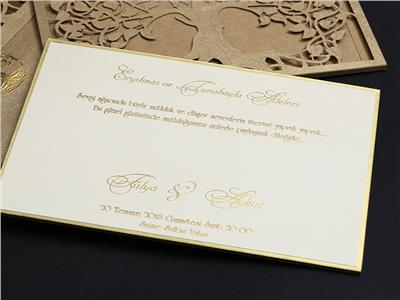 Eryılmaz ve Tunaboylu Aileleri
Sevgi ağacında büyür mutluluk ve düşer sevenlerin üzerine yaprak yaprak...
Bu güzel günümüzde mutluluğumuzu sizlerle paylaşmak dileğiyle...
Fulya & Aykut
20 Temmuz 2018 Cumartesi Saat: 20.00